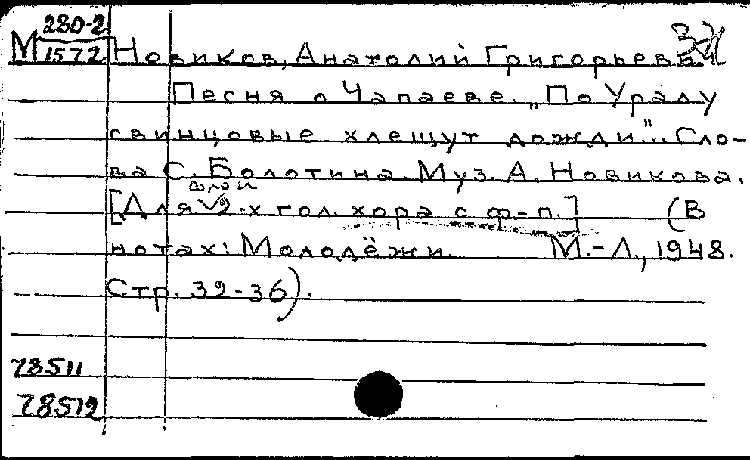 280-2
М 1572
Новиков, Анатолий Григорьевич
Песня о Чапаеве. „По Уралу
свинцовые хлещут дожди"... Сло-
ва С. Болотина. Муз. А. Новикова.
[Для 2-х гол. хора с ф-п.] (В
нотах: Молодёжи. М.-Л., 1948.
Стр. 32-36).
78511
78512